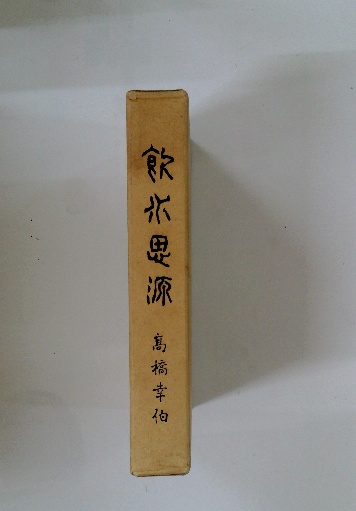 飲水思源
髙橋幸伯